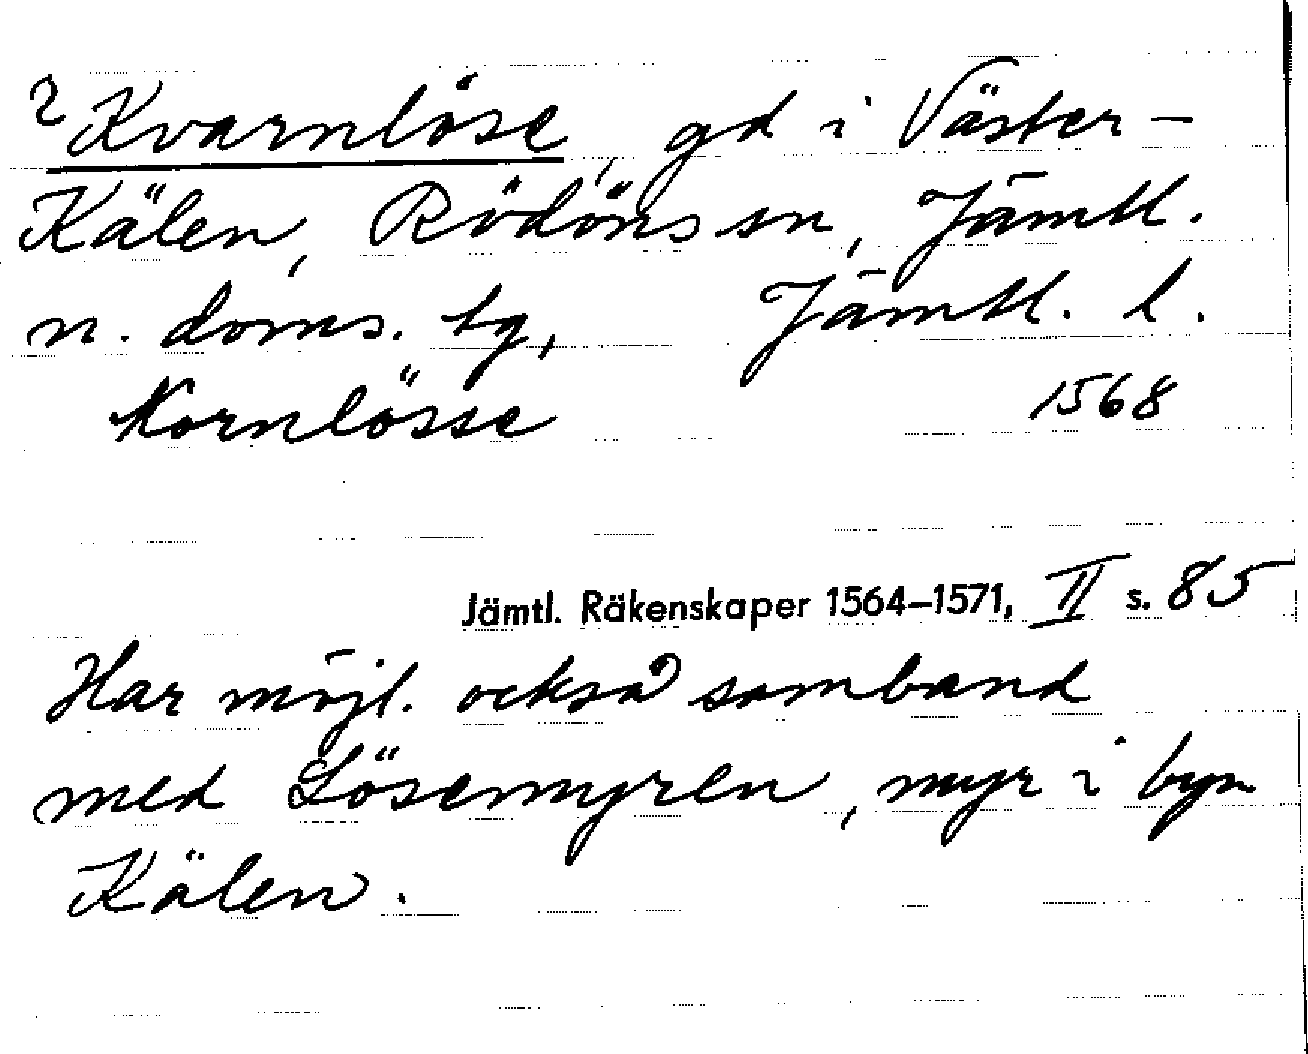 ? Kvarnlöse, gd i Väster-
Kälen, Rödöns sn, Jämtl.
n. doms. tg, Jämtl. l.
Kornlösse 1568
Jämtl. Räkenskaper 1564–1571, II s. 85
Har möjl. också samband
med Lösemyren, myr i byn
Kälen.